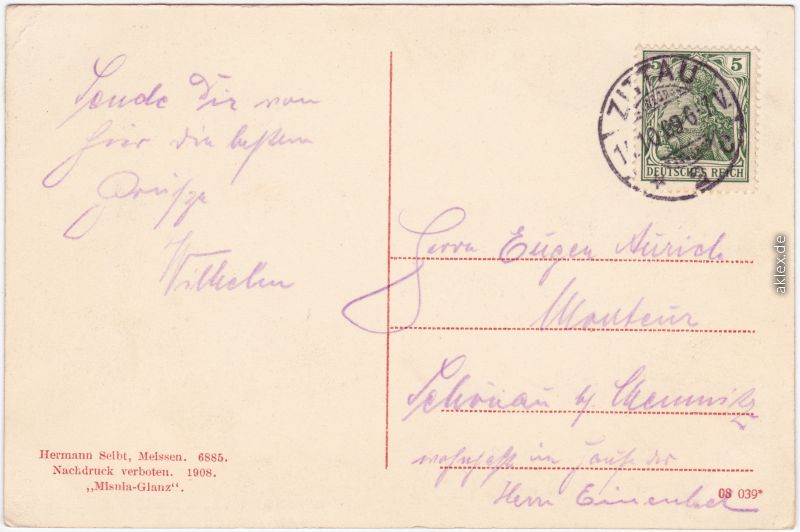 Sende Dir von
hier die besten
Grüße
Wilhelm
5 5
ZITTAU
DEUTSCHES REICH
Herrn Eugen Aurich
Monteur
Schönau b/ Chemnitz
wohnhaft im Hause des
Herrn
Hermann Seibt, Meissen. 6885.
Nachdruck verboten. 1908.
„Misnia-Glanz“.
03 039*
aklex.de